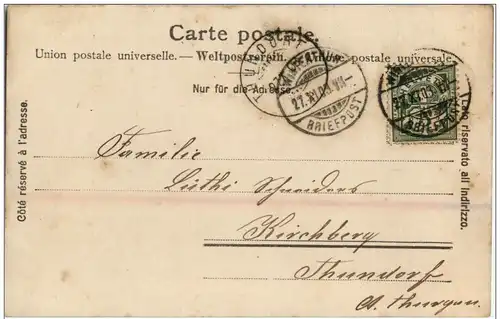 Carte postale.
Union postale universelle. — Weltpostverein. postale universale
Nur für die Adresse.
BRIEFPOST
27.XI.05. VII—
BRIEFPOST
Côté réservé à l'adresse.
Lato riservato all'indirizzo.
Familie
Lüthi Schneiders
Kirchberg
Thundorf
Ct. Thurgau.